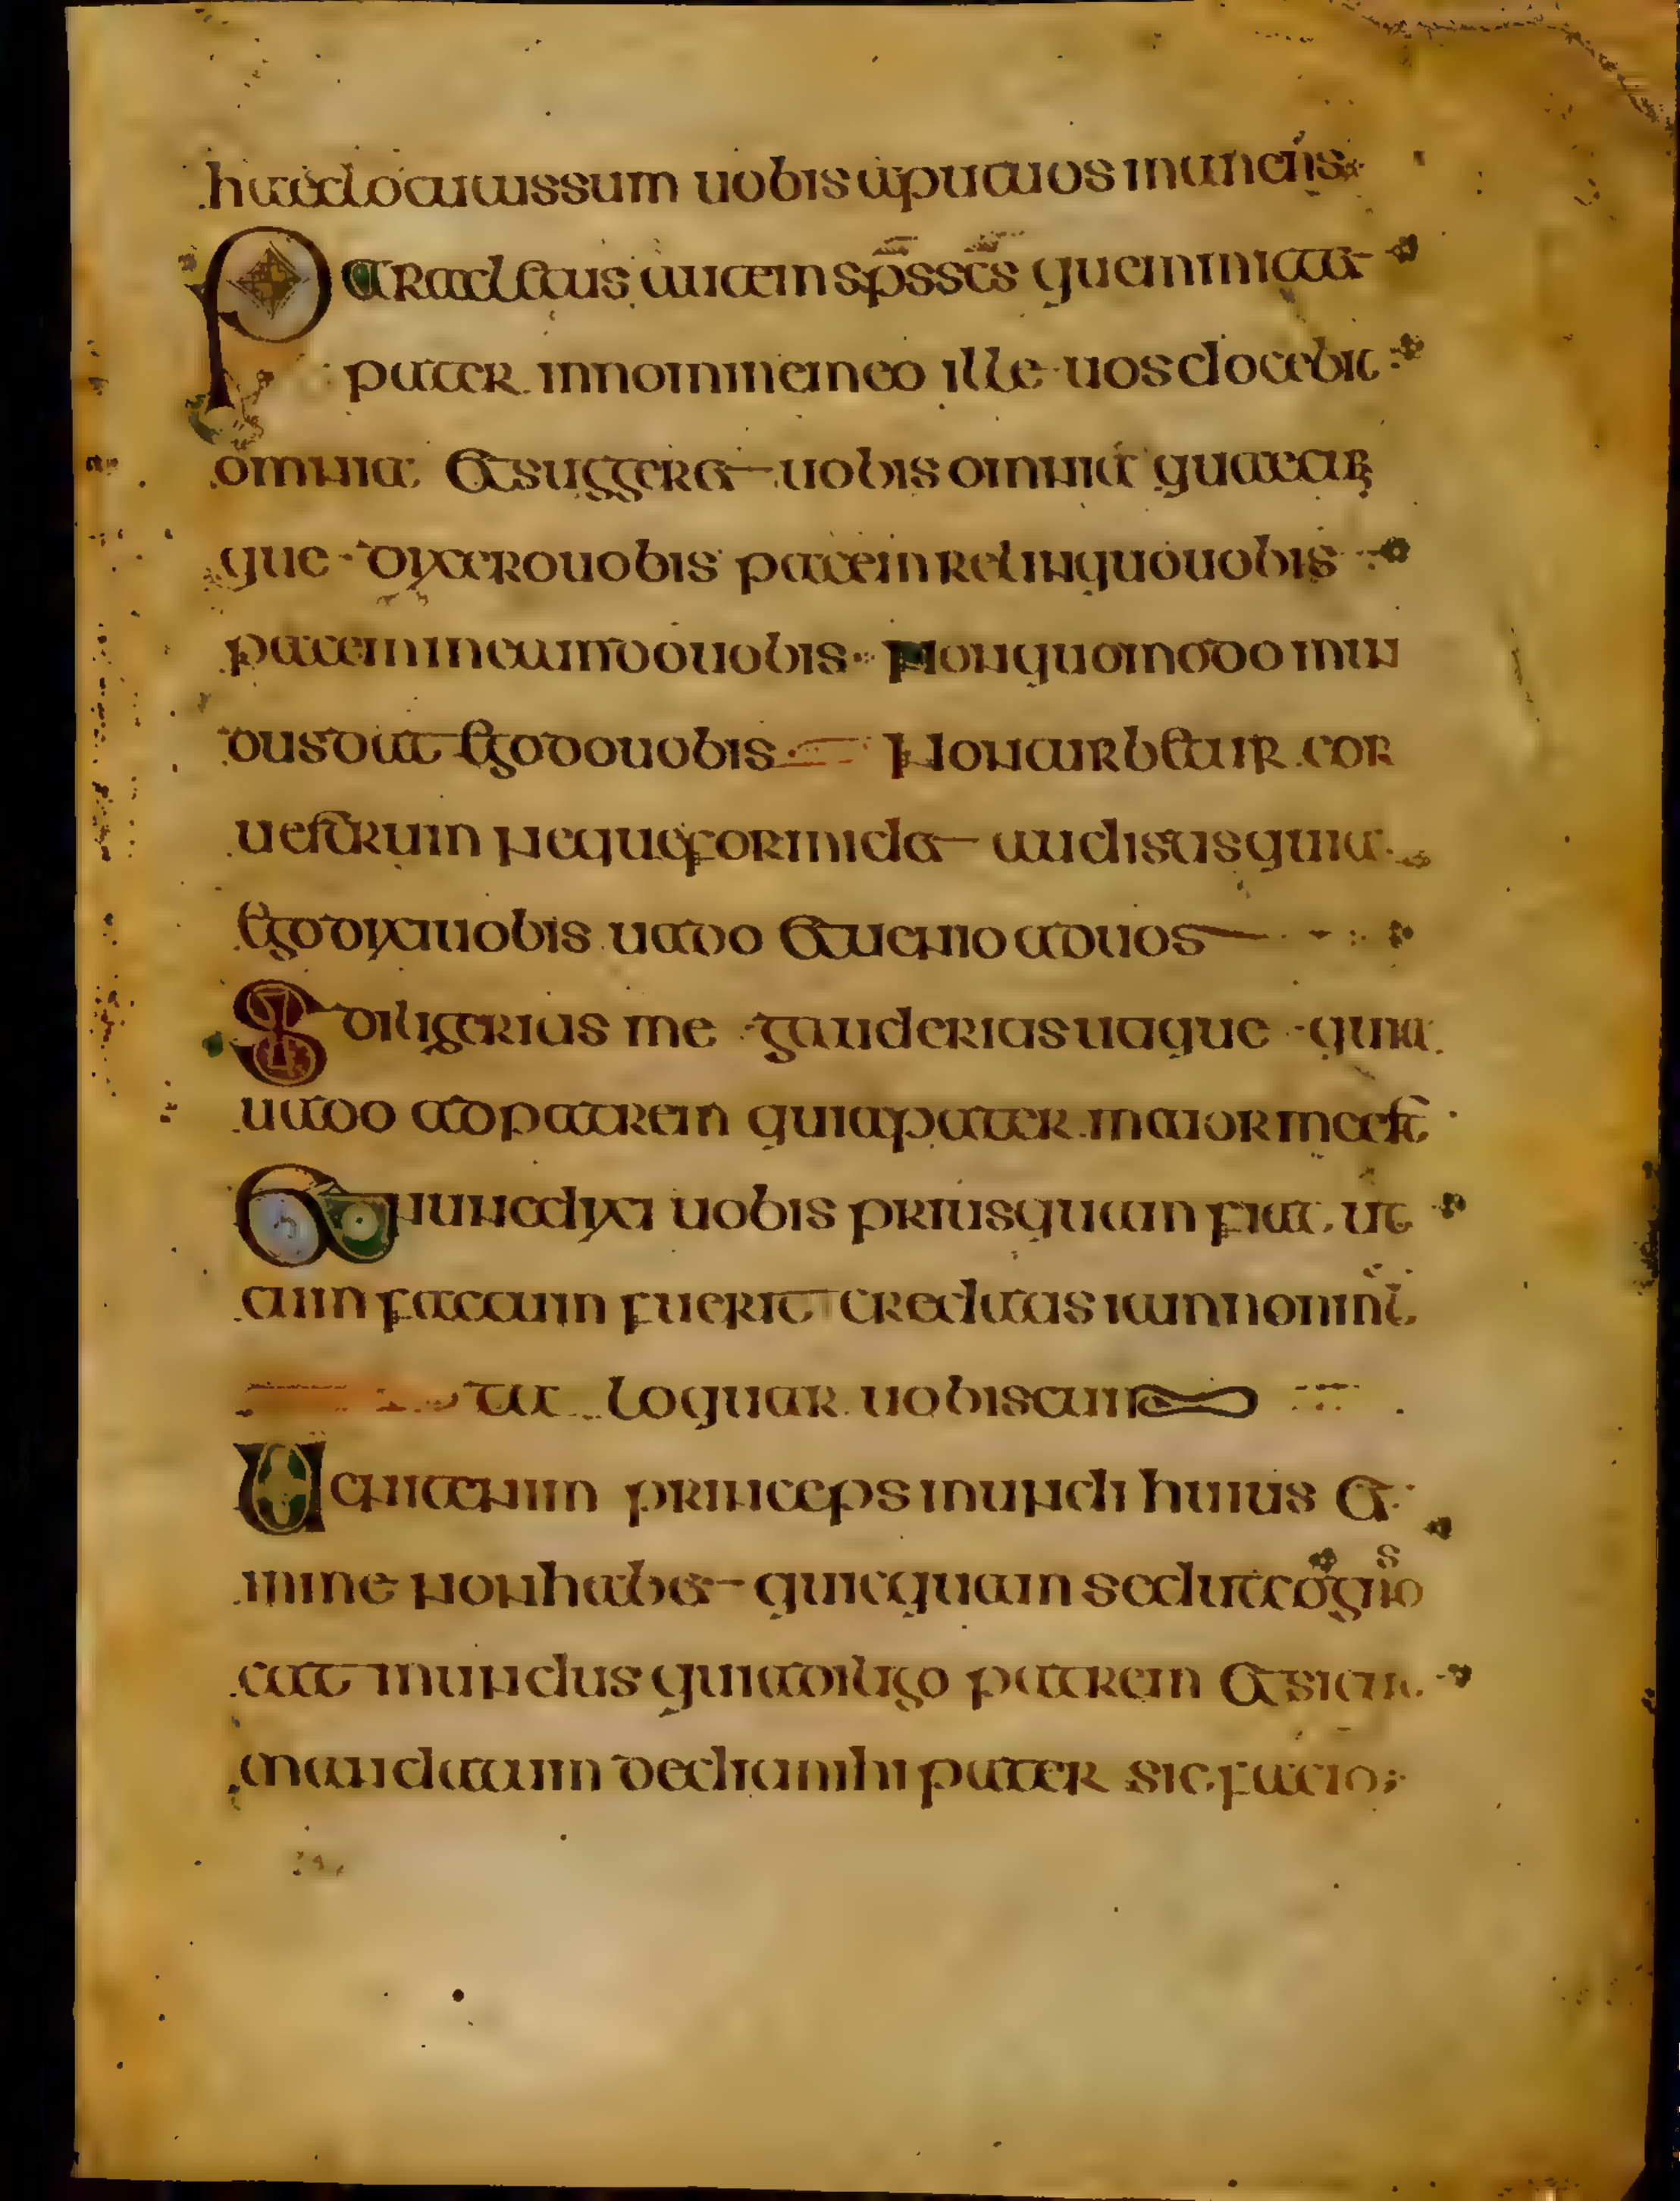 haec locutus sum uobis apud uos manens
Paracletus autem sp̄s sc̄s quem mittet
pater in nomine meo ille uos docebit
omnia et suggeret uobis omnia quaecum
que dixero uobis pacem relinquo uobis
pacem meam do uobis non quomodo mun
dus dat ego do uobis Non turbetur cor
uestrum neque formidet audistis quia
ego dixi uobis uado et uenio ad uos
Si diligeritis me gauderitis utique quia
uado ad patrem quia pater maior me est
Et nunc dixi uobis priusquam fiat ut
cum factum fuerit creditis iam non ml
ta loquar uobiscum
Uenit enim princeps mundi huius et
in me non habet quicquam sed ut cognos
cat mundus quia diligo patrem et sicut
mandatum dedit mihi pater sic facio